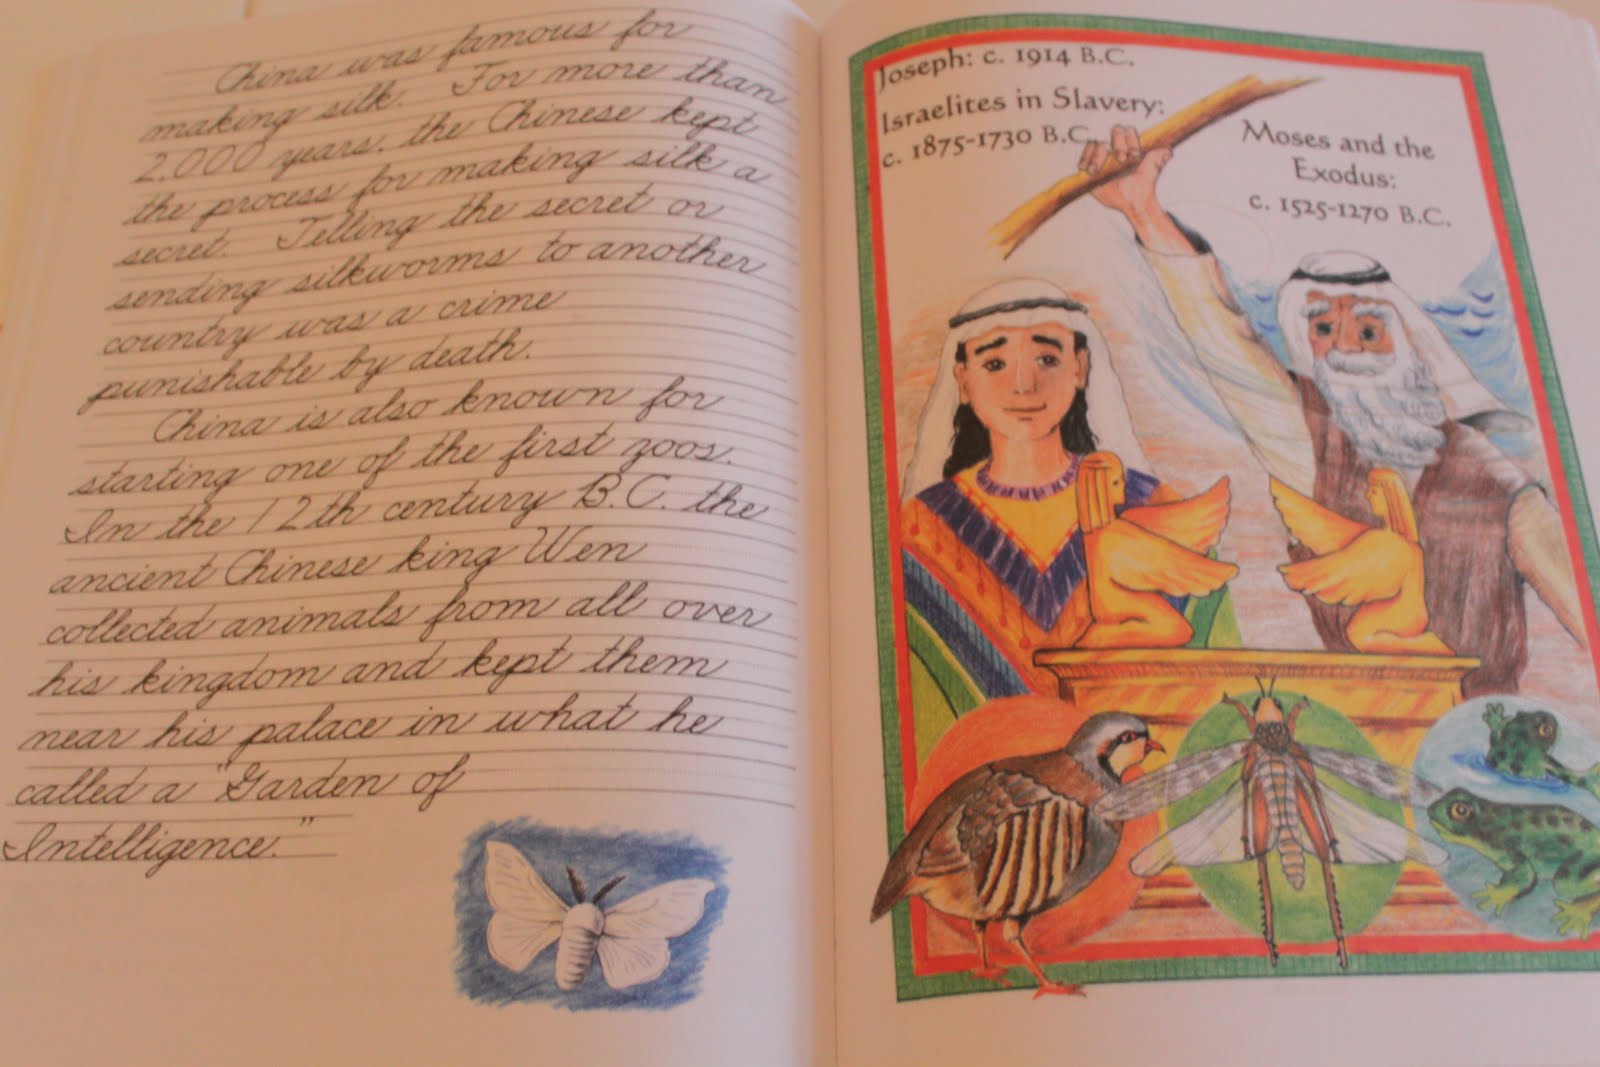 China was famous for
making silk. For more than
2,000 years, the Chinese kept
the process for making silk a
secret. Telling the secret or
sending silkworms to another
country was a crime
punishable by death.
China is also known for
starting one of the first zoos.
In the 12th century B.C. the
ancient Chinese king Wen
collected animals from all over
his kingdom and kept them
near his palace in what he
called a "Garden of
Intelligence."
Joseph: c. 1914 B.C.
Israelites in Slavery:
c. 1875-1730 B.C.
Moses and the
Exodus:
c. 1525-1270 B.C.